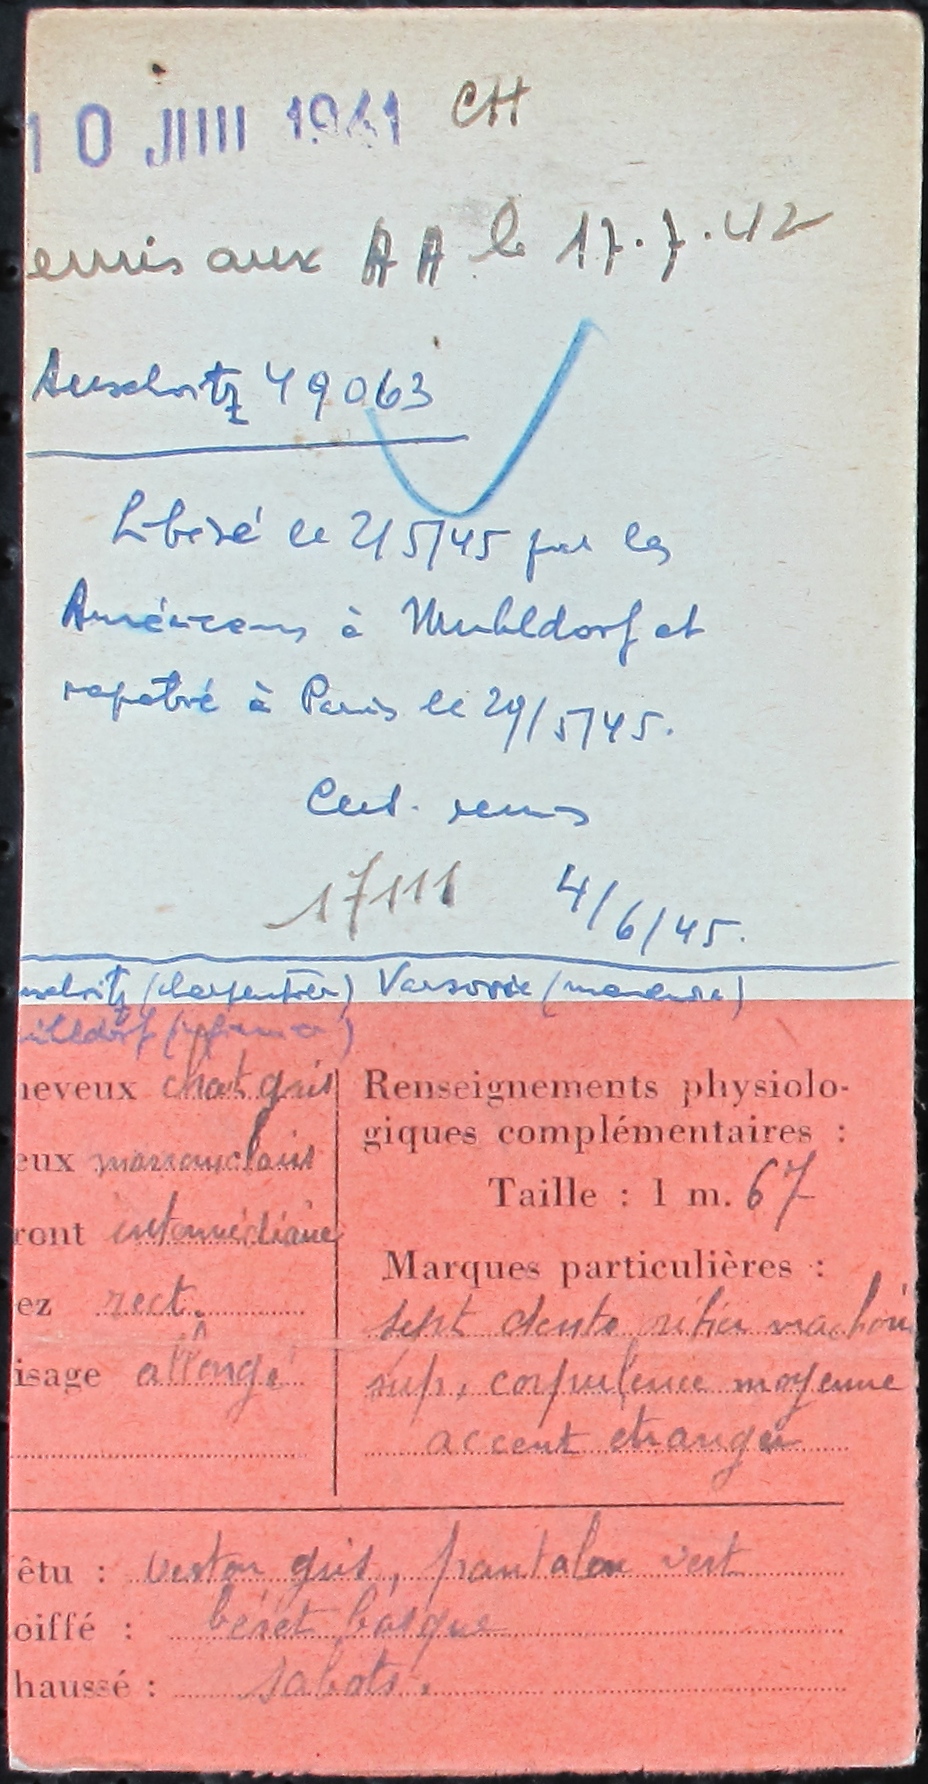 10 JUIN 1941 CH
emis aux AA le 17.7.42
Auschwitz 49063
Libéré le 2/5/45 par les
Américains à Muhldorf et
rapatrié à Paris le 29/5/45.
Cert. remis
17111 4/6/45.
uschwitz (charpentier) Varsovie (manœuvre)
uhldorf
heveux chat gris
eux marron clair
ront intermédiaire
ez rect.
isage allongé
Renseignements physiolo-
giques complémentaires :
Taille : 1 m. 67
Marques particulières :
sept dents métier machoire
sup. corpulence moyenne
accent étranger
êtu : veston gris, pantalon vert
oiffé : béret basque
haussé : sabots.